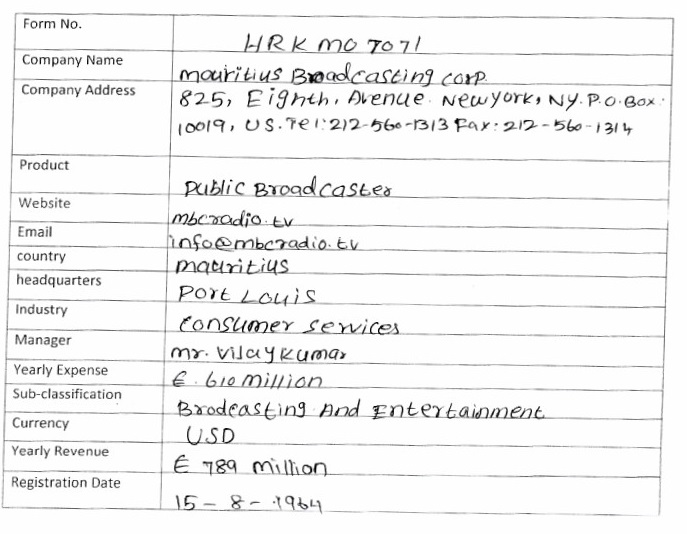 Form No.
HRK MO 7071
Company Name
mauritius Broadcasting corp.
Company Address
825, Eighth, Avenue. New york, NY. P.O. Box:
10019, US. Tel: 212-560-1313 Fax: 212-560-1314
Product
public Broadcaster
Website
mbcradio.tv
Email
info@mbcradio.tv
country
mauritius
headquarters
Port Louis
Industry
Consumer services
Manager
mr. vijay kumar
Yearly Expense
€. 610 million
Sub-classification
Brodcasting And Entertainment
Currency
USD
Yearly Revenue
€ 789 million
Registration Date
15 - 8 - 1964